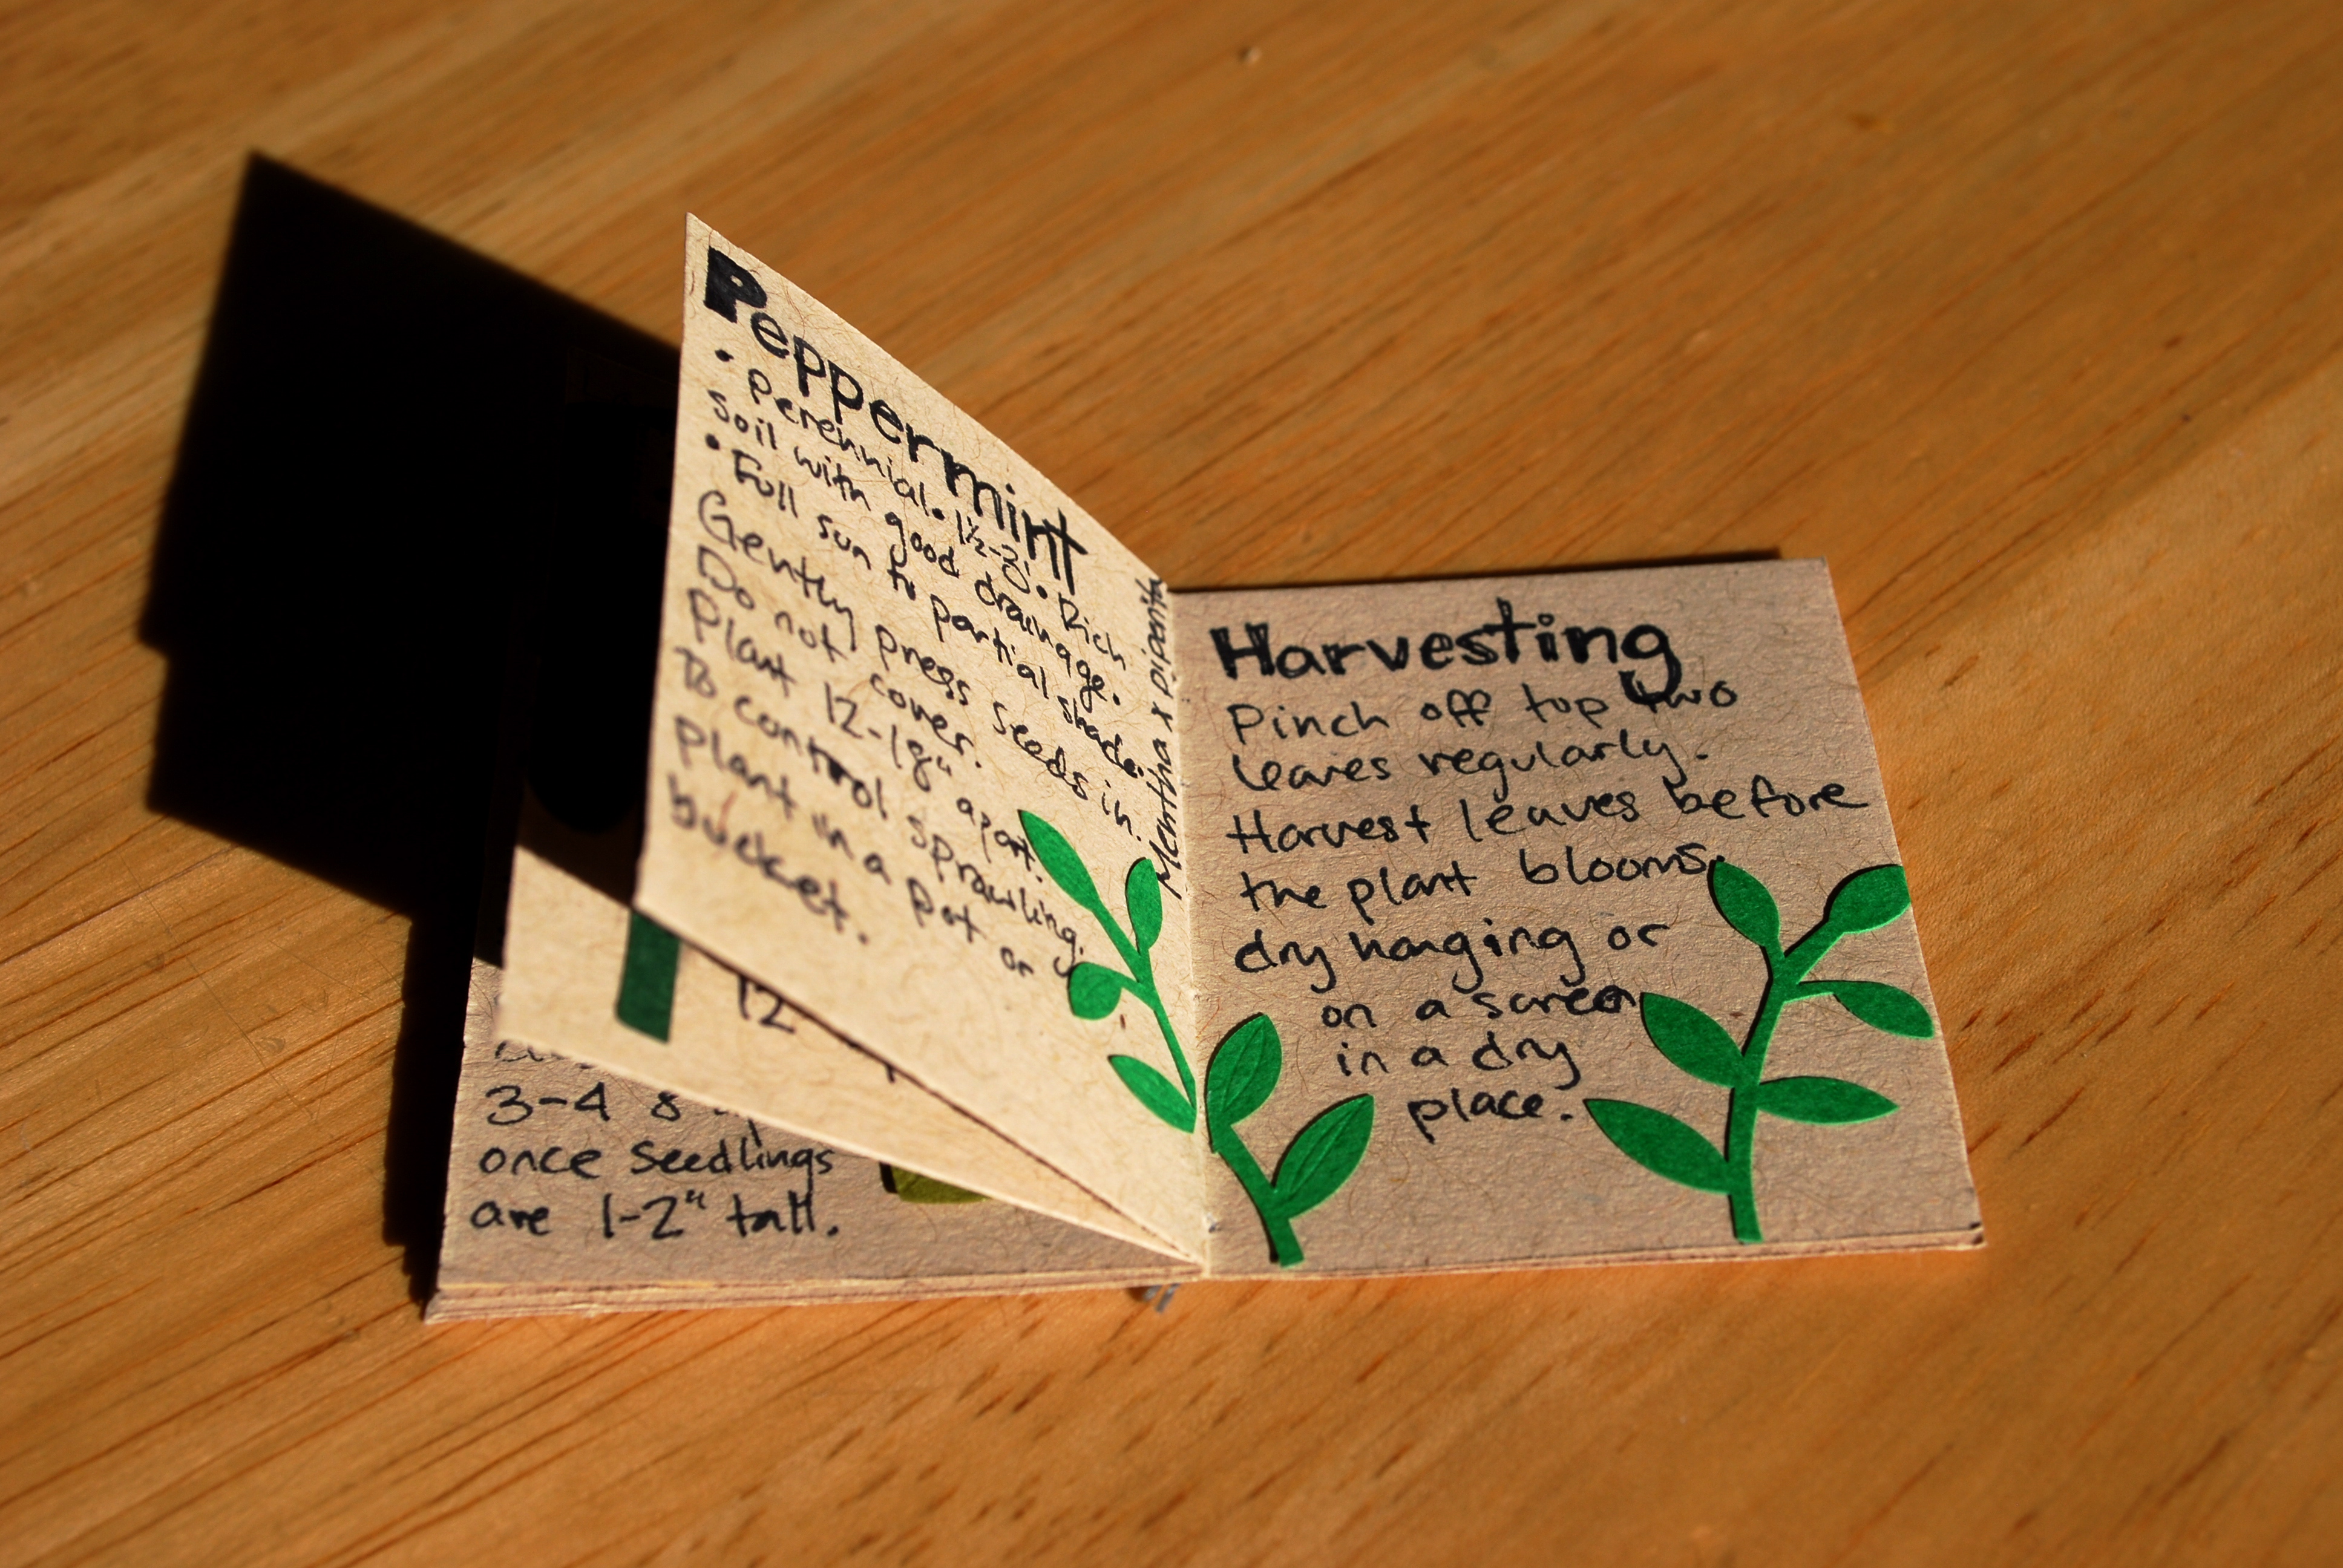 Peppermint
• Perennial. • 1½-3'. • Rich
soil with good drainage.
• Full sun to partial shade.
Gently press seeds in.
Do not cover.
Plant 12-18" apart.
To control sprawling,
plant in a pot or
bucket.
Mentha x piperita
Harvesting
Pinch off top two
leaves regularly.
Harvest leaves before
the plant blooms,
dry hanging or
on a screen
in a dry
place.
12
3-4 8
once seedlings
are 1-2" tall.